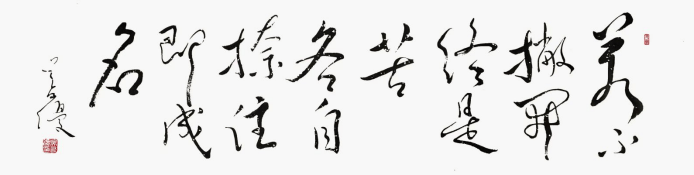 若不
撇开
终是
苦
各自
捺住
即成
名